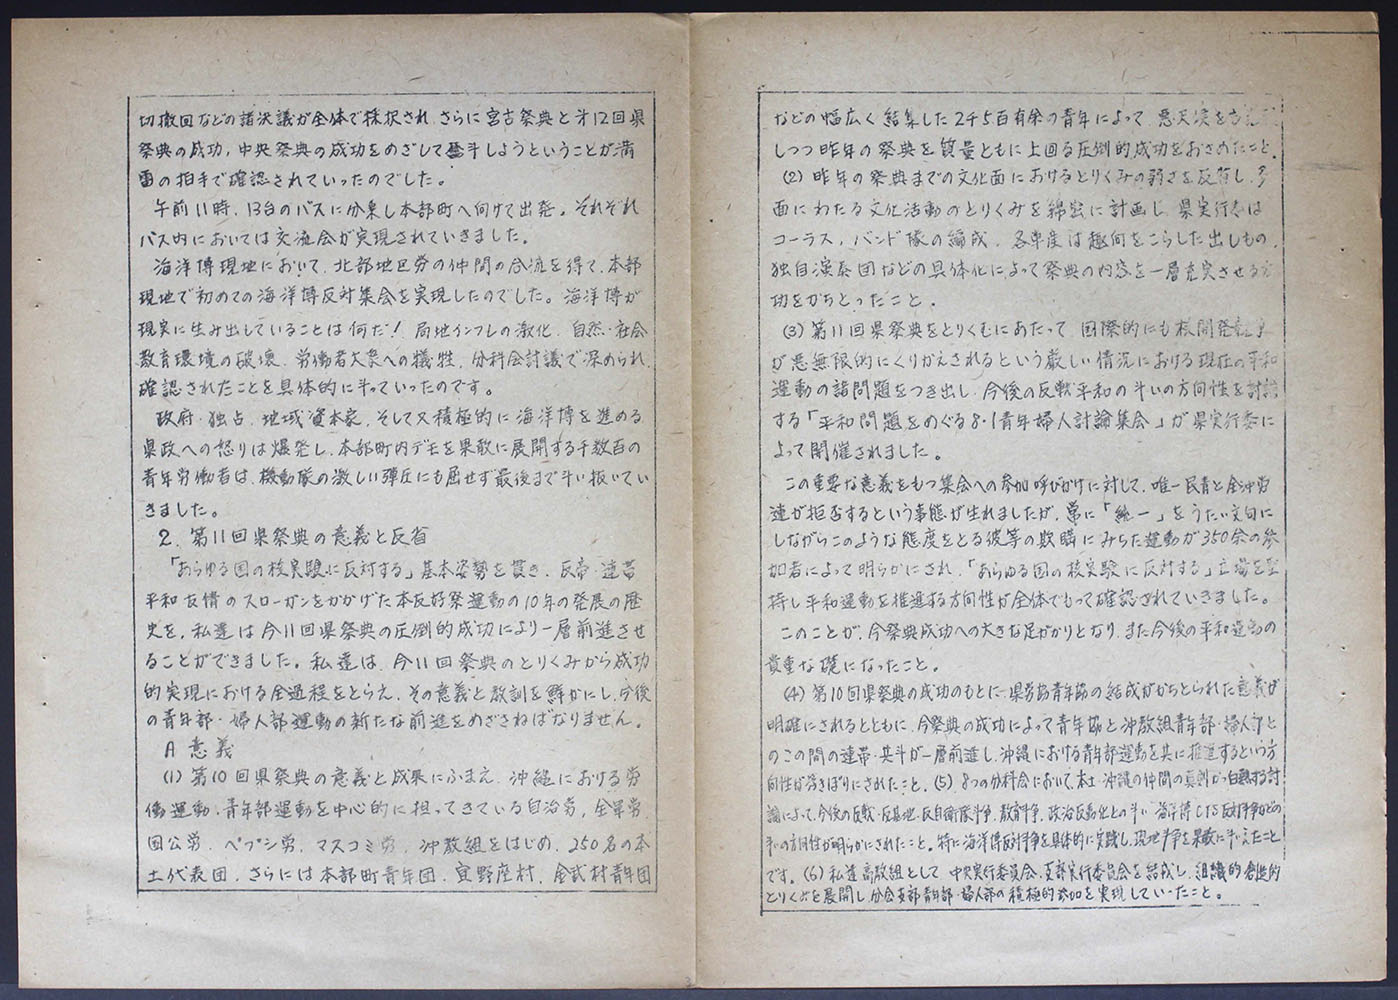 切撤回などの諸決議が全体で採択され さらに宮古祭典と才12回県
祭典の成功，中央祭典の成功をめざして奮斗しようということが満
雷の拍手で確認されていったのでした。
午前11時．13台のバスに分乗し本部町へ向けて出発。それぞれ
バス内においては交流会が実現されていきました。
海洋博現地において，北部地区労の仲間の合流を得て，本部
現地で初めての海洋博反対集会を実現したのでした。海洋博が
現実に生み出していることは何だ！ 局地インフレの激化．自然・社会
教育環境の破壊．労働者大衆への犠牲．分科会討議で深められ，
確認されたことを具体的に斗っていったのです。
政府・独占．地域資本家．そして又積極的に海洋博を進める
県政への怒りは爆発し．本部町内デモを果敢に展開する千数百の
青年労働者は，機動隊の激しい弾圧にも屈せず最後まで斗い抜いてい
きました。
2．第11回県祭典の意義と反省
「あらゆる国の核実験に反対する」基本姿勢を貫き．反帝・連帯
平和友情のスローガンをかかげた本友好祭運動の10年の発展の歴
史を，私達は今11回県祭典の圧倒的成功により一層前進させ
ることができました。私達は．今11回祭典のとりくみから成功
的実現における全過程をとらえ．その意義と教訓を鮮かにし，今後
の青年部・婦人部運動の新たな前進をめざさねばなりません。
A 意義
(1) 第10回県祭典の意義と成果にふまえ．沖縄における労
働運動．青年部運動を中心的に担ってきている自治労，全軍労．
国公労．ペプシ労．マスコミ労．沖教組をはじめ．250名の本
土代表団．さらには本部町青年団．宜野座村．金武村青年団
などの幅広く結集した2千5百有余の青年によって 悪天候を
しつつ昨年の祭典を質量ともに上回る圧倒的成功をおさめたこと．
(2) 昨年の祭典までの文化面におけるとりくみの弱さを反省し，多
面にわたる文化活動のとりくみを綿密に計画し 県実行委は
コーラス，バンド隊の編成．各単産は趣向をこらした出しもの，
独自演奏団などの具体化によって祭典の内容を一層充実させる
功をかちとったこと．
(3) 第11回県祭典をとりくむにあたって 国際的にも核開発競争
が悪無限的にくりかえされるという厳しい情況における現在の平和
運動の諸問題をつき出し．今後の反戦平和の斗いの方向性を討論
する「平和問題をめぐる8・1青年婦人討論集会」が県実行委に
よって開催されました。
この重要な意義をもつ集会への参加呼びかけに対して．唯一民青と全沖労
連が拒否するという事態が生れましたが．常に「統一」をうたい文句に
しながらこのような態度をとる彼等の欺瞞にみちた運動が350余の参
加者によって明らかにされ．「あらゆる国の核実験に反対する」立場を堅
持し平和運動を推進する方向性が全体でもって確認されていきました。
このことが．今祭典成功への大きな足がかりとなり．また今後の平和運動の
貴重な礎になったこと。
(4) 第10回県祭典の成功のもとに 県労協青年協の結成がかちとられた意義が
明確にされるとともに．今祭典の成功によって青年協と沖教組青年部・婦人部と
のこの間の連帯・共斗が一層前進し．沖縄における青年部運動を共に推進するという方
向性が浮きぼりにされたこと．(5) 8つの分科会において．本土・沖縄の仲間の真剣かつ白熱する討
論によって．今後の反戦・反基地・反自衛隊斗争．教育斗争．政治反動化との斗い 海洋博CTS反対斗争などの
斗いの方向性が明らかにされたこと。特に海洋博反対斗争を具体的に実践し．現地斗争を果敢に斗いえたこと
です。(6) 私達高教組として 中央実行委員会．支部実行委員会を結成し．組織的創造的
とりくみを展開し 分会支部青年部・婦人部の積極的参加を実現していったこと。